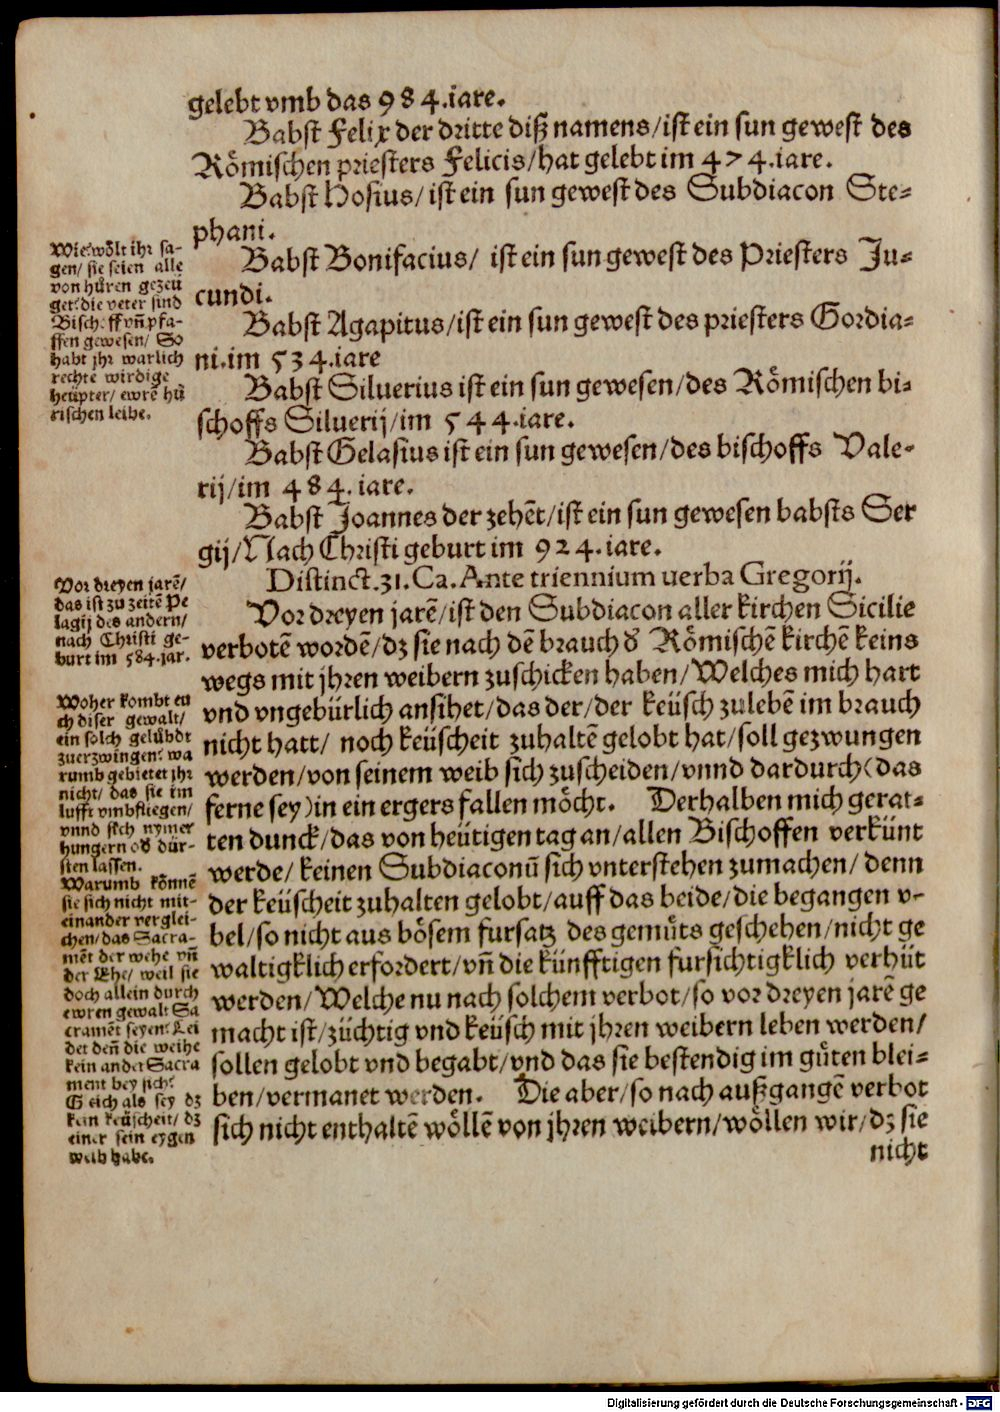 gelebt vmb das 984.iare.
Babst Felix der dritte diß namens/ist ein sun gewest des
Rômischen priesters Felicis/hat gelebt im 474.iare.
Babst Hosius/ ist ein sun gewest des Subdiacon Ste-
phani.
Babst Bonifacius/ ist ein sun gewest des Priesters Ju-
cundi.
Babst Agapitus/ist ein sun gewest des priesters Gordia-
ni.im 534.iare
Babst Siluerius ist ein sun gewesen/des Rômischen bi-
schoffs Siluerij/im 544.iare.
Babst Gelasius ist ein sun gewesen/des bischoffs Vale-
rij/im 484. iare.
Babst Joannes der zehēt/ist ein sun gewesen babsts Ser
gij/Nach Christi geburt im 924.iare.
Distinct.31.Ca.Ante triennium uerba Gregorij.
Vor dreyen jarē/ist den Subdiacon aller kirchen Sicilie
verbotē wordē/dz sie nach dē brauch d̕ Rômischē kirchē keins
wegs mit jhren weibern zuschicken haben/Welches mich hart
vnd vngebürlich ansihet/das der/der keüsch zulebē im brauch
nicht hatt/ noch keüscheit zuhaltē gelobt hat/soll gezwungen
werden/von seinem weib sich zuscheiden/vnnd dardurch(das
ferne sey)in ein ergers fallen môcht. Derhalben mich gerat-
ten dunck/das von heütigen tag an/allen Bischoffen verkünt
werde/ keinen Subdiaconū sich vnterstehen zumachen/ denn
der keüscheit zuhalten gelobt/auff das beide/die begangen v-
bel/so nicht aus bôsem fursatz des gemůts geschehen/nicht ge
waltigklich erfordert/vn̄ die künfftigen fursichtigklich verhüt
werden/Welche nu nach solchem verbot/so vor dreyen jarē ge
macht ist/züchtig vnd keüsch mit jhren weibern leben werden/
sollen gelobt vnd begabt/vnd das sie bestendig im gůten blei-
ben/vermanet werden. Die aber/so nach außgangē verbot
sich nicht enthaltē wôllē von jhren weibern/wôllen wir/dz sie
nicht
Wie wôlt ihr sa-
gen/ sie seien alle
von hůren gezeü
get: die veter sind
Bisch ff vn̄ pfa-
ffen gewesen/ So
habt jhr warlich
rechte wirdige
heüpter/ ewrē hů
rischen leibe.
Vor dreyen jarē/
das ist zu zeitē Pe
lagij des andern/
nach Christi ge-
burt im 584.jar.
Woher kombt eu
ch diser gewalt/
ein solch gelübdt
zuerzwingen: wa
rumb gebietet jhr
nicht/ das sie im
lufft vmbfliegen/
vnnd sich nymer
hungern od̕ dür-
sten lassen.
Warumb kônnē
sie sich nicht mit-
einander verglei-
chen/das Sacra-
mēt der wehe vn̄
der Ehe/ weil sie
doch allein durch
ewren gewalt Sa
cramēt seyen: Lei
det den̄ die weihe
kein ander Sacra
ment bey sich:
G eich als sey dz
kein keüscheit/ dz
einer sein eygen
weib habe.
Digitalisierung gefördert durch die Deutsche Forschungsgemeinschaft - DFG